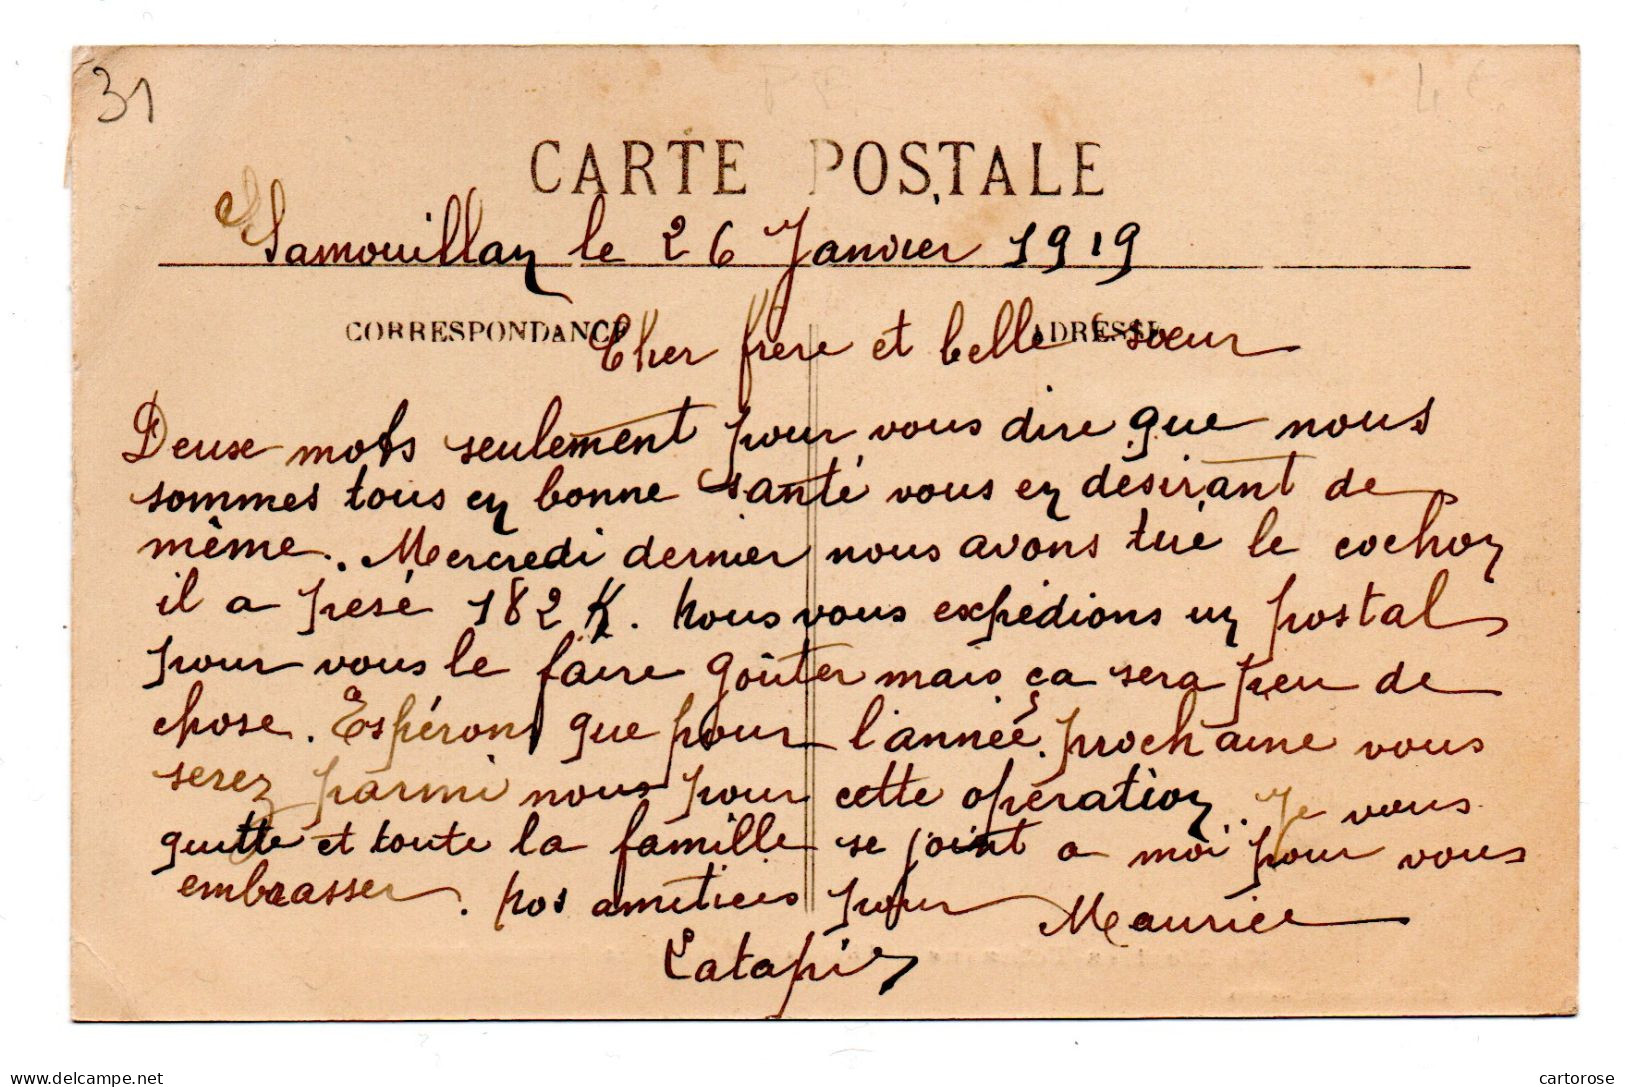 31
CARTE POSTALE
Samouillan le 26 Janvier 1919
CORRESPONDANCE ADRESSE
Cher frère et belle soeur
Deux mots seulement pour vous dire que nous
sommes tous en bonne santé vous en désirant de
même. Mercredi dernier nous avons tué le cochon
il a pesé 182 K. Nous vous expédions un postal
pour vous le faire goûter mais ça sera peu de
chose. Espérons que pour l'année prochaine vous
serez parmi nous pour cette opération. Je vous
quitte et toute la famille se joint a moi pour vous
embrasser. Nos amitiés pour Maurice
Latapie
delcampe.net
cartorose